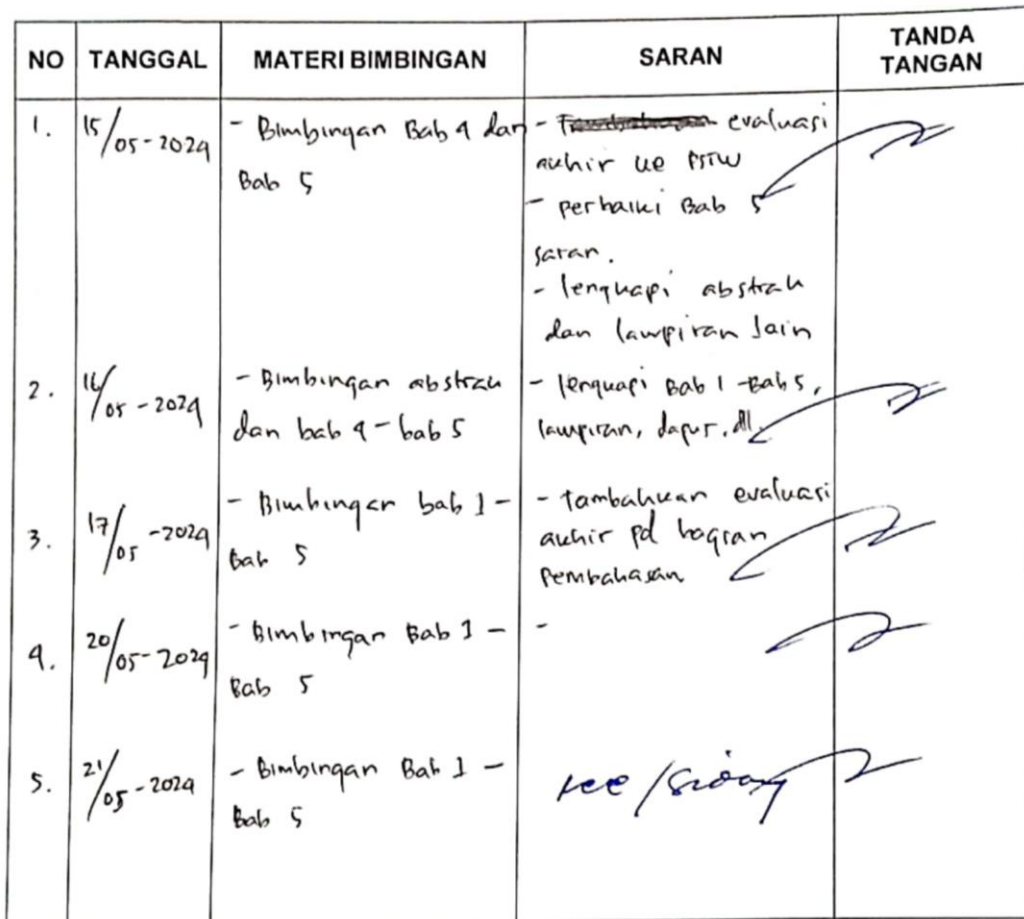 NO TANGGAL MATERI BIMBINGAN SARAN TANDA TANGAN
1. 15/05-2024 - Bimbingan Bab 4 dan - evaluasi
Bab 5 akhir ke PSTW
- perbaiki Bab 5
saran.
- lengkapi abstrak
dan lampiran lain
2. 16/05-2024 - Bimbingan abstrak - lengkapi Bab 1-Bab 5,
dan bab 4-bab 5 lampiran, dapus, dll
3. 17/05-2024 - Bimbingan bab 1- - tambahkan evaluasi
Bab 5 akhir pd bagian
pembahasan
4. 20/05-2024 - Bimbingan Bab 1- -
Bab 5
5. 21/05-2024 - Bimbingan Bab 1- Acc/Sidang
Bab 5